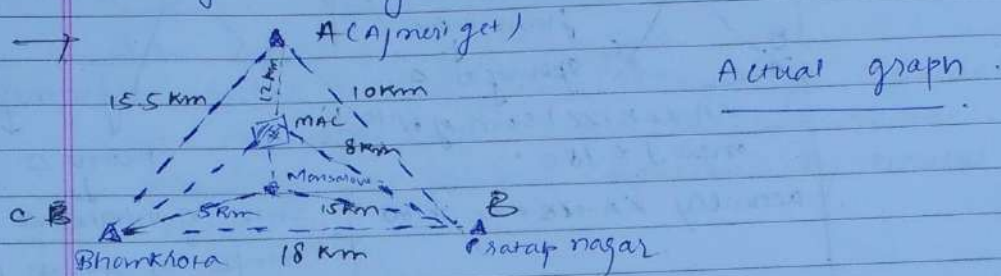 A (Ajmeri get)
Actual graph.
15.5 Km
12 Km
10 Km
MAC
8 Km
Mansarovar
C B
5 Km
15 Km
B
Bhamkhota
18 Km
Pratap nagar